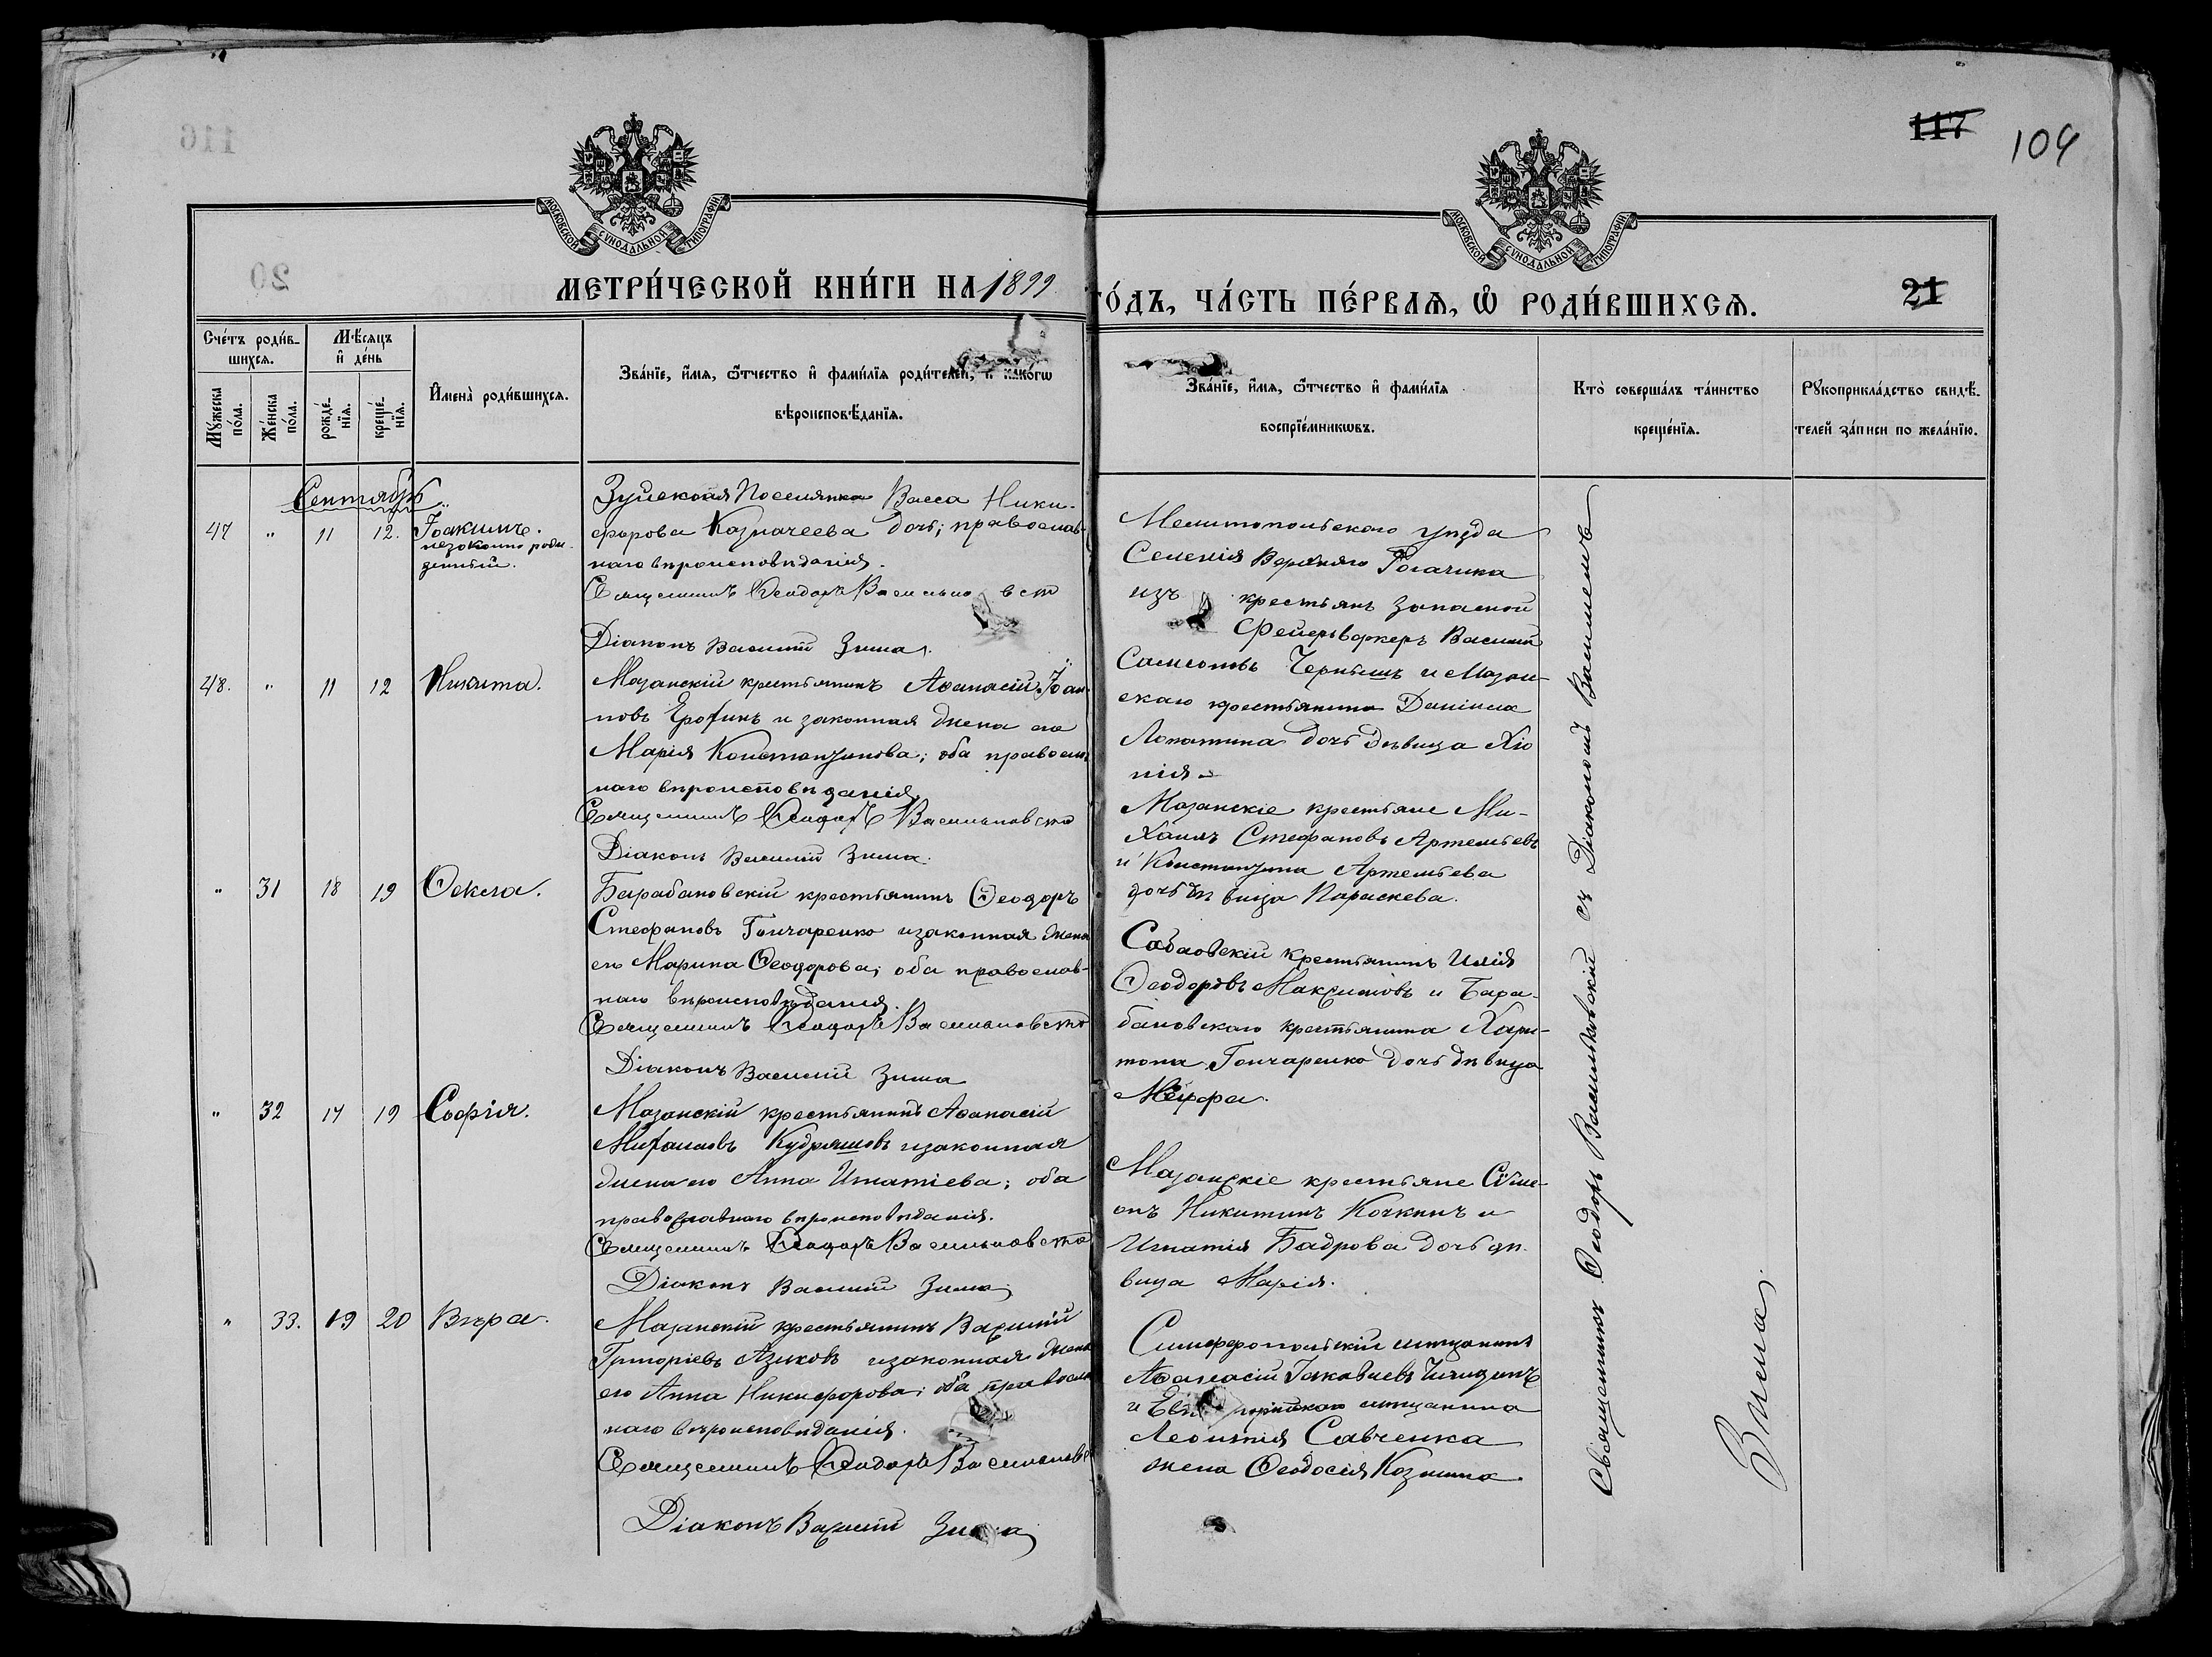 117
104
116
МОСКОВСКОЙ СУНОДАЛЬНОЙ ТИПОГРАФІИ
МОСКОВСКОЙ СУНОДАЛЬНОЙ ТИПОГРАФІИ
20
МЕТРИ́ЧЕСКОЙ КНИ́ГИ НА 1899
ГО́ДЪ, ЧА́СТЬ ПЕ́РВАЯ, Ѡ҆ РОДИ́ВШИХСЯ.
21
Сче́тъ роди́в-
шихся.
Мѣ́сяцъ
и҆ де́нь
Му́жеска
по́ла.
Же́нска
по́ла.
рожде́-
нїя.
креще́-
нїя.
И҆мена̀ роди́вшихся.
Зва́нїе, и҆́мя, ѻ҆́тчество и҆ фами́лїя роди́телей, и҆ како́гѡ
вѣроисповѣ́данїя.
Зва́нїе, и҆́мя, ѻ҆́тчество и҆ фами́лїя
воспрїе́мникѡвъ.
Кто̀ соверша́лъ та́инство
креще́нїя.
Рꙋкоприкла́дство свидѣ́-
телей за́писи по жела́нїю.
Сентябрь
47 " 11 12. Іоакимъ.
незаконно рож-
денный.
Зуйская Поселянка Васса Ники-
форова Казначеева дочь; православ-
наго вѣроисповѣданія.
Священникъ Ѳеодоръ Васильковскій
Діаконъ Василій Зима.
Мелитопольскаго уѣзда
Селенія Верхняго Рогачика
изъ крестьянъ запасной
Фейерверкеръ Василій
Самсоновъ Чернышъ и Мазан-
скаго крестьянина Даніила
Лопатина дочь дѣвица Хіо
нія
48. " 11 12 Никита.
Мазанскій крестьянинъ Аѳанасій Іоан-
новъ Ерохинъ и законная жена его
Марія Константинова; оба православ
наго вѣроисповѣданія.
Священникъ Ѳеодоръ Васильковскій
Діаконъ Василій Зима.
Мазанскіе крестьяне Ми-
хаилъ Стефановъ Артемьевъ
и Константина Артемьева
дочь дѣвица Параскева.
" 31 18 19 Ѳекла.
Барабановскій крестьянинъ Ѳеодоръ
Стефановъ Гончаренко и законная жена
его Марина Ѳеодорова; оба православ-
наго вѣроисповѣданія.
Священникъ Ѳеодоръ Васильковскій
Діаконъ Василій Зима
крестьянинъ Илія
Ѳеодоровъ Максимовъ и Бара-
бановскаго крестьянина Хари-
тона Гончаренко дочь дѣвица
" 32 17 19 Софія.
Мазанскій крестьянинъ Аѳанасій
Михаиловъ Кудряшовъ и законная
жена его Анна Игнатіева; оба
православнаго вѣроисповѣданія.
Священникъ Ѳеодоръ Васильковскій
Діаконъ Василій Зима
Мазанскіе крестьяне Сѵме-
онъ Никитинъ Кочкинъ и
Игнатія Бадрова дочь дѣ-
вица Марія.
" 33. 19 20 Вѣра.
Мазанскій крестьянинъ Василій
Григоріевъ Азиковъ и законная жена
его Анна Никифорова; оба православ
наго вѣроисповѣданія.
Священникъ Ѳеодоръ Васильковс
Діаконъ Василій Зима
Симферопольскій мѣщанинъ
Аѳанасій Іаковлевъ
и мѣщанина
Леонтія Савченка
жена Ѳеодосія Козмина.
Священникъ Ѳеодоръ Васильковскій съ Діакономъ Василіемъ
Зима.